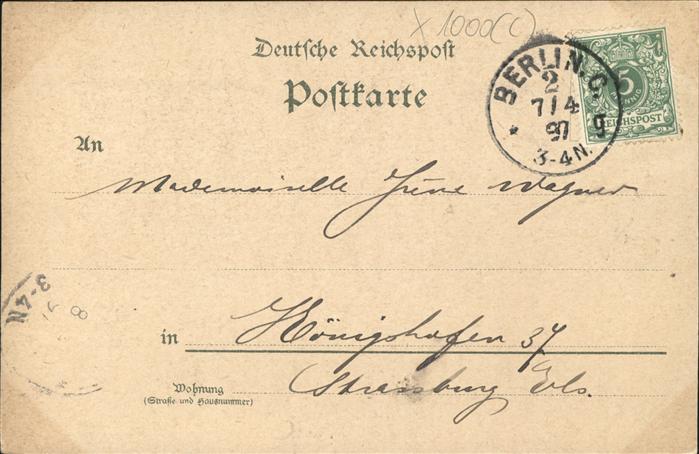 X 1000 (C)
Deutsche Reichspost
Postkarte
BERLIN. C.
2
7/4
97
3-4 N.
5
REICHSPOST
An
Mademoiselle Irène Wagner
in Königshofen 37
Strassburg Els.
Wohnung
(Straße und Hausnummer)
3-4 N
8